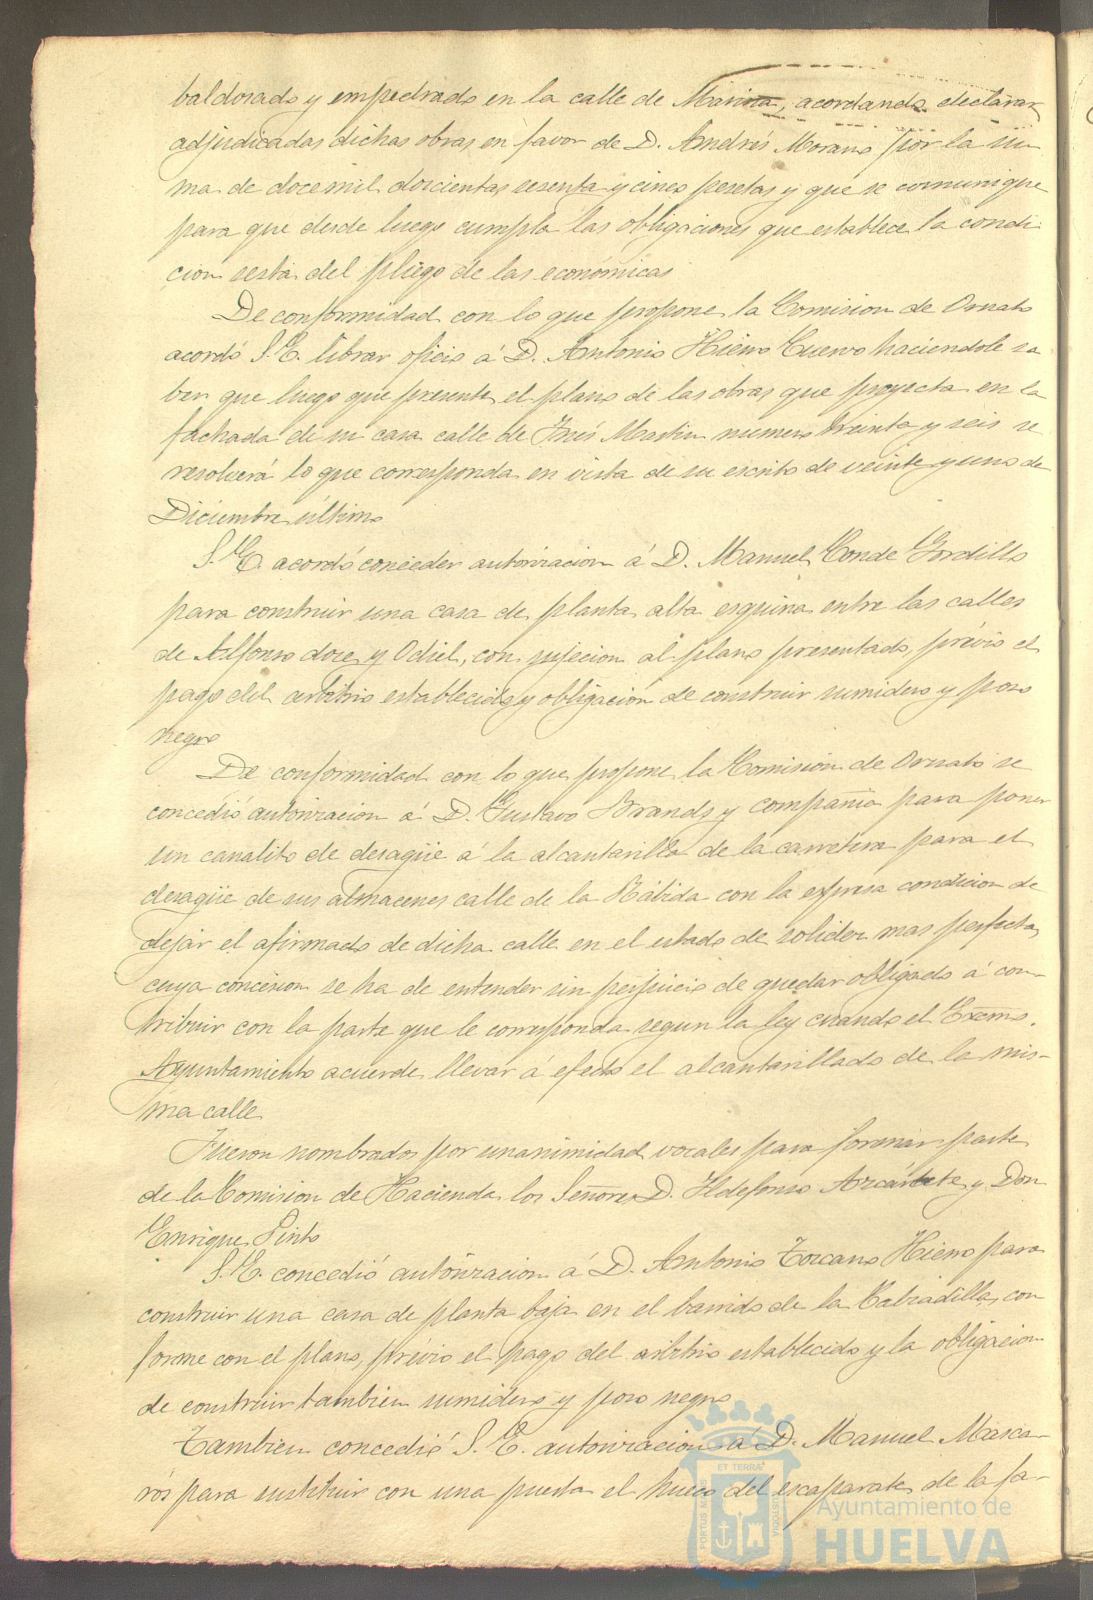 baldosado y empedrado en la calle de Marina, acordando declarar
adjudicadas dichas obras en favor de D. Andrés Morano por la su-
ma de docemil doscientas sesenta y cinco pesetas y que se comunique
para que desde luego cumpla las obligaciones que establece la condi-
cion sesta del pliego de las económicas
De conformidad con lo que propone la Comision de Ornato
acordó S.E. librar oficio á D. Antonio Hierro Cuervo haciendole sa
ber que luego que presente el plano de las obras que proyecta en la
fachada de su casa calle de Inés Martin numero treinta y seis se
resolverá lo que corresponda en vista de su escrito de veinte y uno de
Diciembre último
S.E. acordó conceder autorizacion á D. Manuel Conde Gordillo
para construir una casa de planta alta esquina entre las calles
de Alfonso doce y Odiel, con sujecion al plano presentado, prévio el
pago del arbitrio establecido y obligacion de construir sumidero y pozo
negro
De conformidad con lo que propone la Comision de Ornato se
concedió autorizacion á D. Gustavo Brands y compañia para poner
un canalito de desagüe á la alcantarilla de la carretera para el
desagüe de sus almacenes calle de la Rábida con la espresa condicion de
dejar el afirmado de dicha calle en el estado de solidez mas perfecta,
cuya concesion se ha de entender sin perjuicio de quedar obligado á con-
tribuir con la parte que le corresponda segun la ley cuando el Excmo.
Ayuntamiento acuerde llevar á efecto el alcantarillado de la mis-
ma calle
Fueron nombrados por unanimidad vocales para formar parte
de la Comision de Hacienda los Señores D. Ildefonso Azcárate y Don
Enrique Pinto
S.E. concedió autorizacion á D. Antonio Toscano Hierro para
construir una casa de planta baja en el barrido de la Calzadilla, con
forme con el plano, prévio el pago del arbitrio establecido y la obligacion
de construir tambien sumidero y pozo negro
Tambien concedió S.E. autorizacion á D. Manuel Masca-
rós para sustituir con una puerta el hueco del escaparate de la fa-
PORTUS MARIS
ET TERRÆ
CUSTODIA
Ayuntamiento de
HUELVA